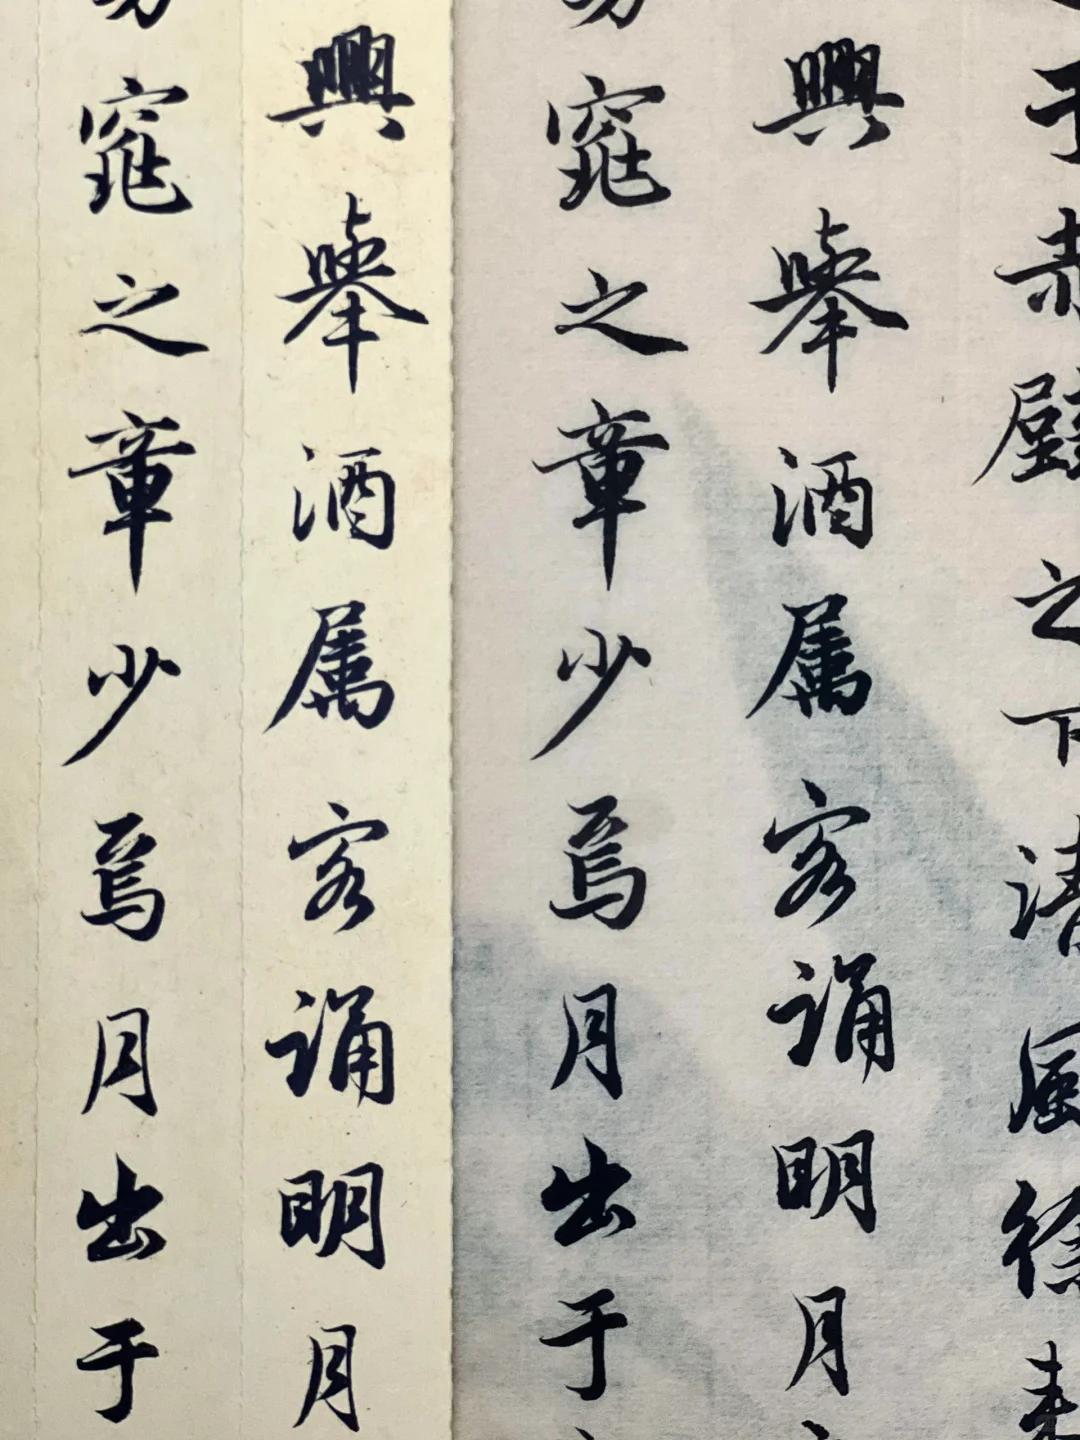 于赤壁之下清風徐来
興舉酒属客誦明月
窕之章少焉月出于
興舉酒属客誦明月
窕之章少焉月出于